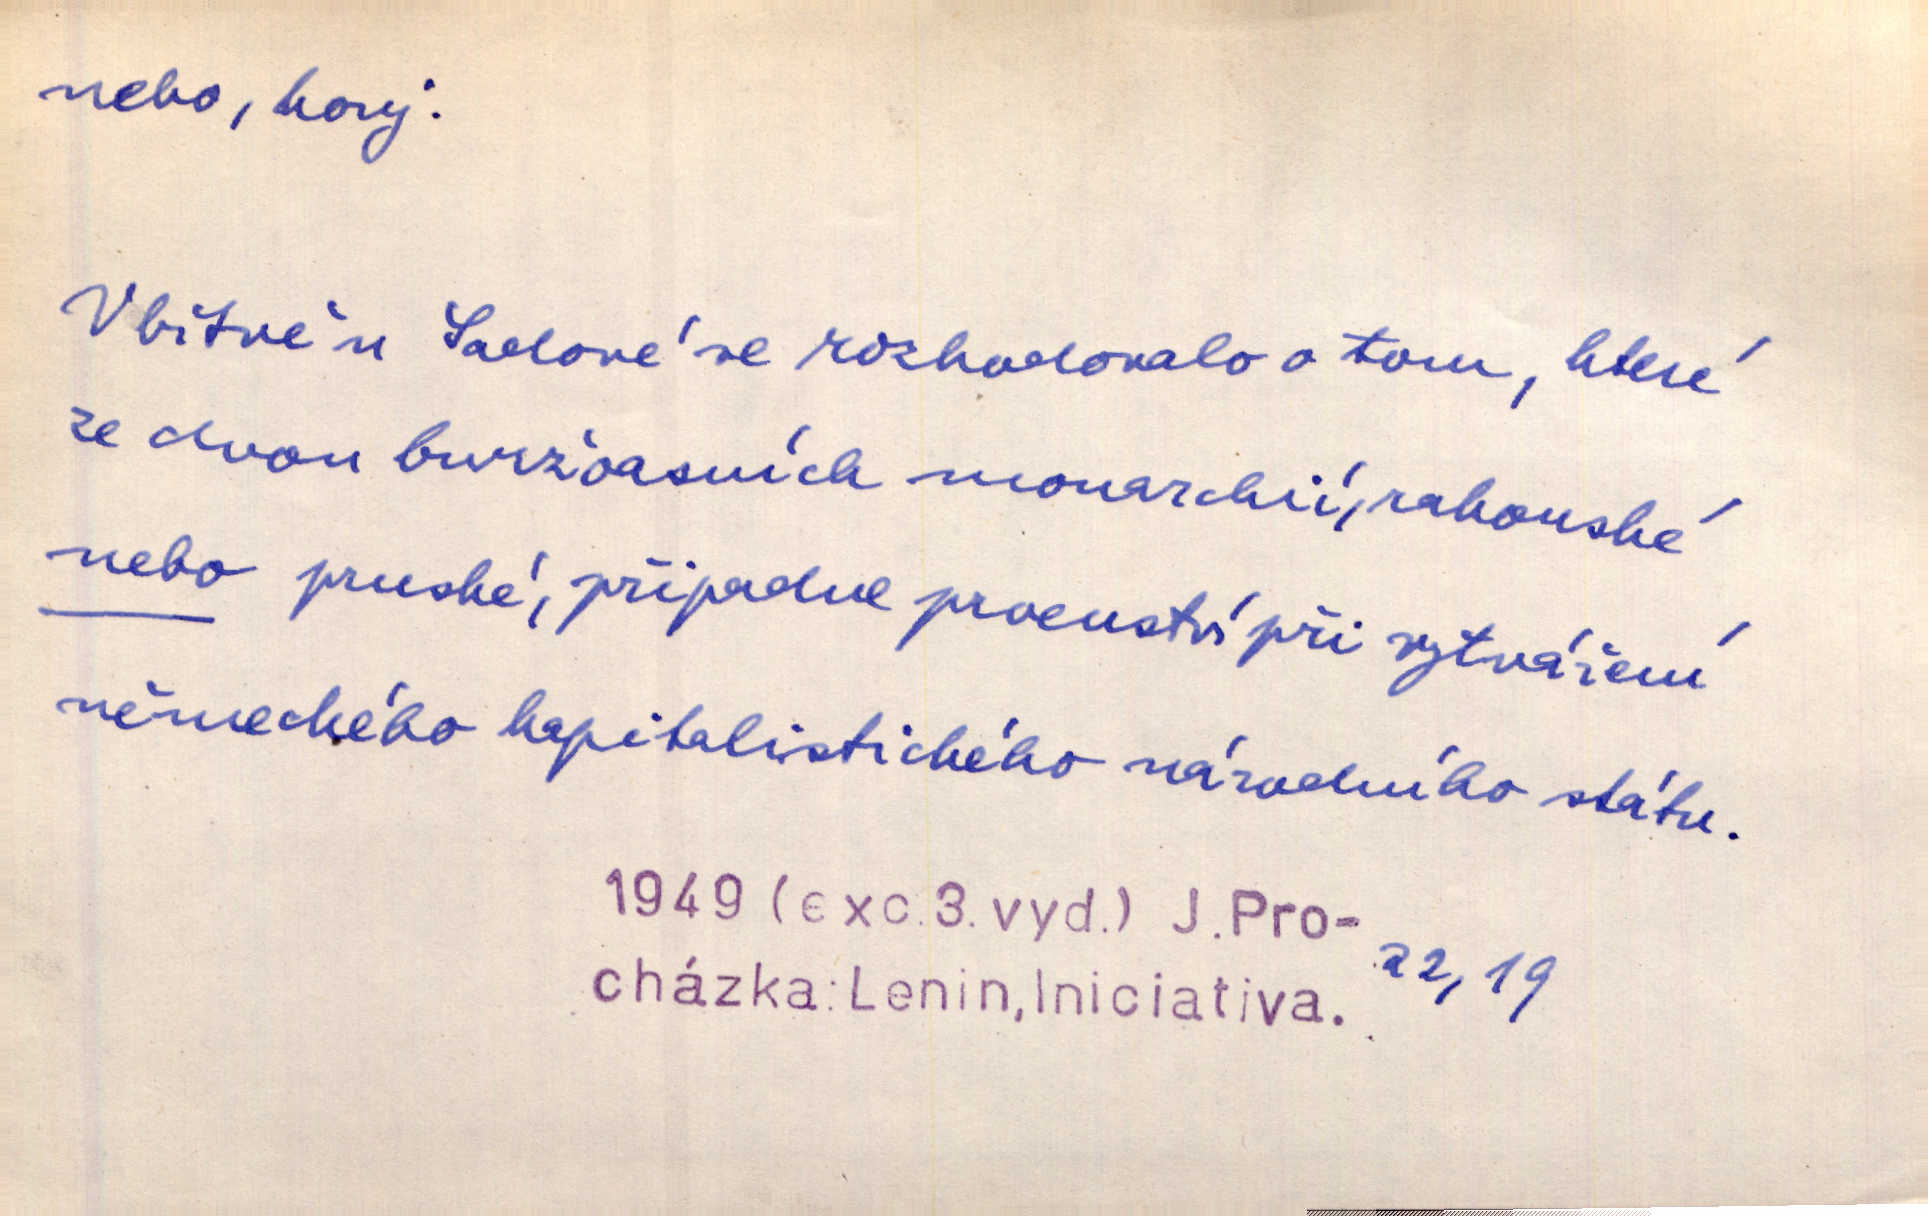 nebo, konj.
V bitvě u Sadové se rozhodovalo o tom, které
ze dvou buržoasních monarchií, rakouské
nebo pruské, připadne prvenství při vytváření
německého kapitalistického národního státu.
1949 (exc. 3. vyd.) J. Pro-
cházka: Lenin, Iniciativa. 22, 19